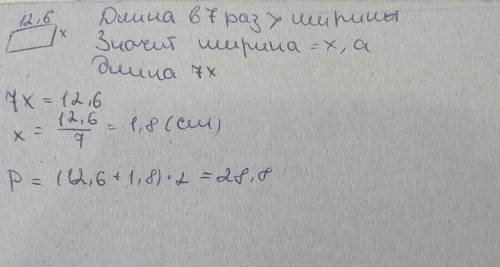 12,6
x
Длина в 7 раз > ширины
Значит ширина = x, а
длина 7x
7x = 12,6
x = 12,6/7 = 1,8 (см)
P = (12,6 + 1,8) · 2 = 28,8